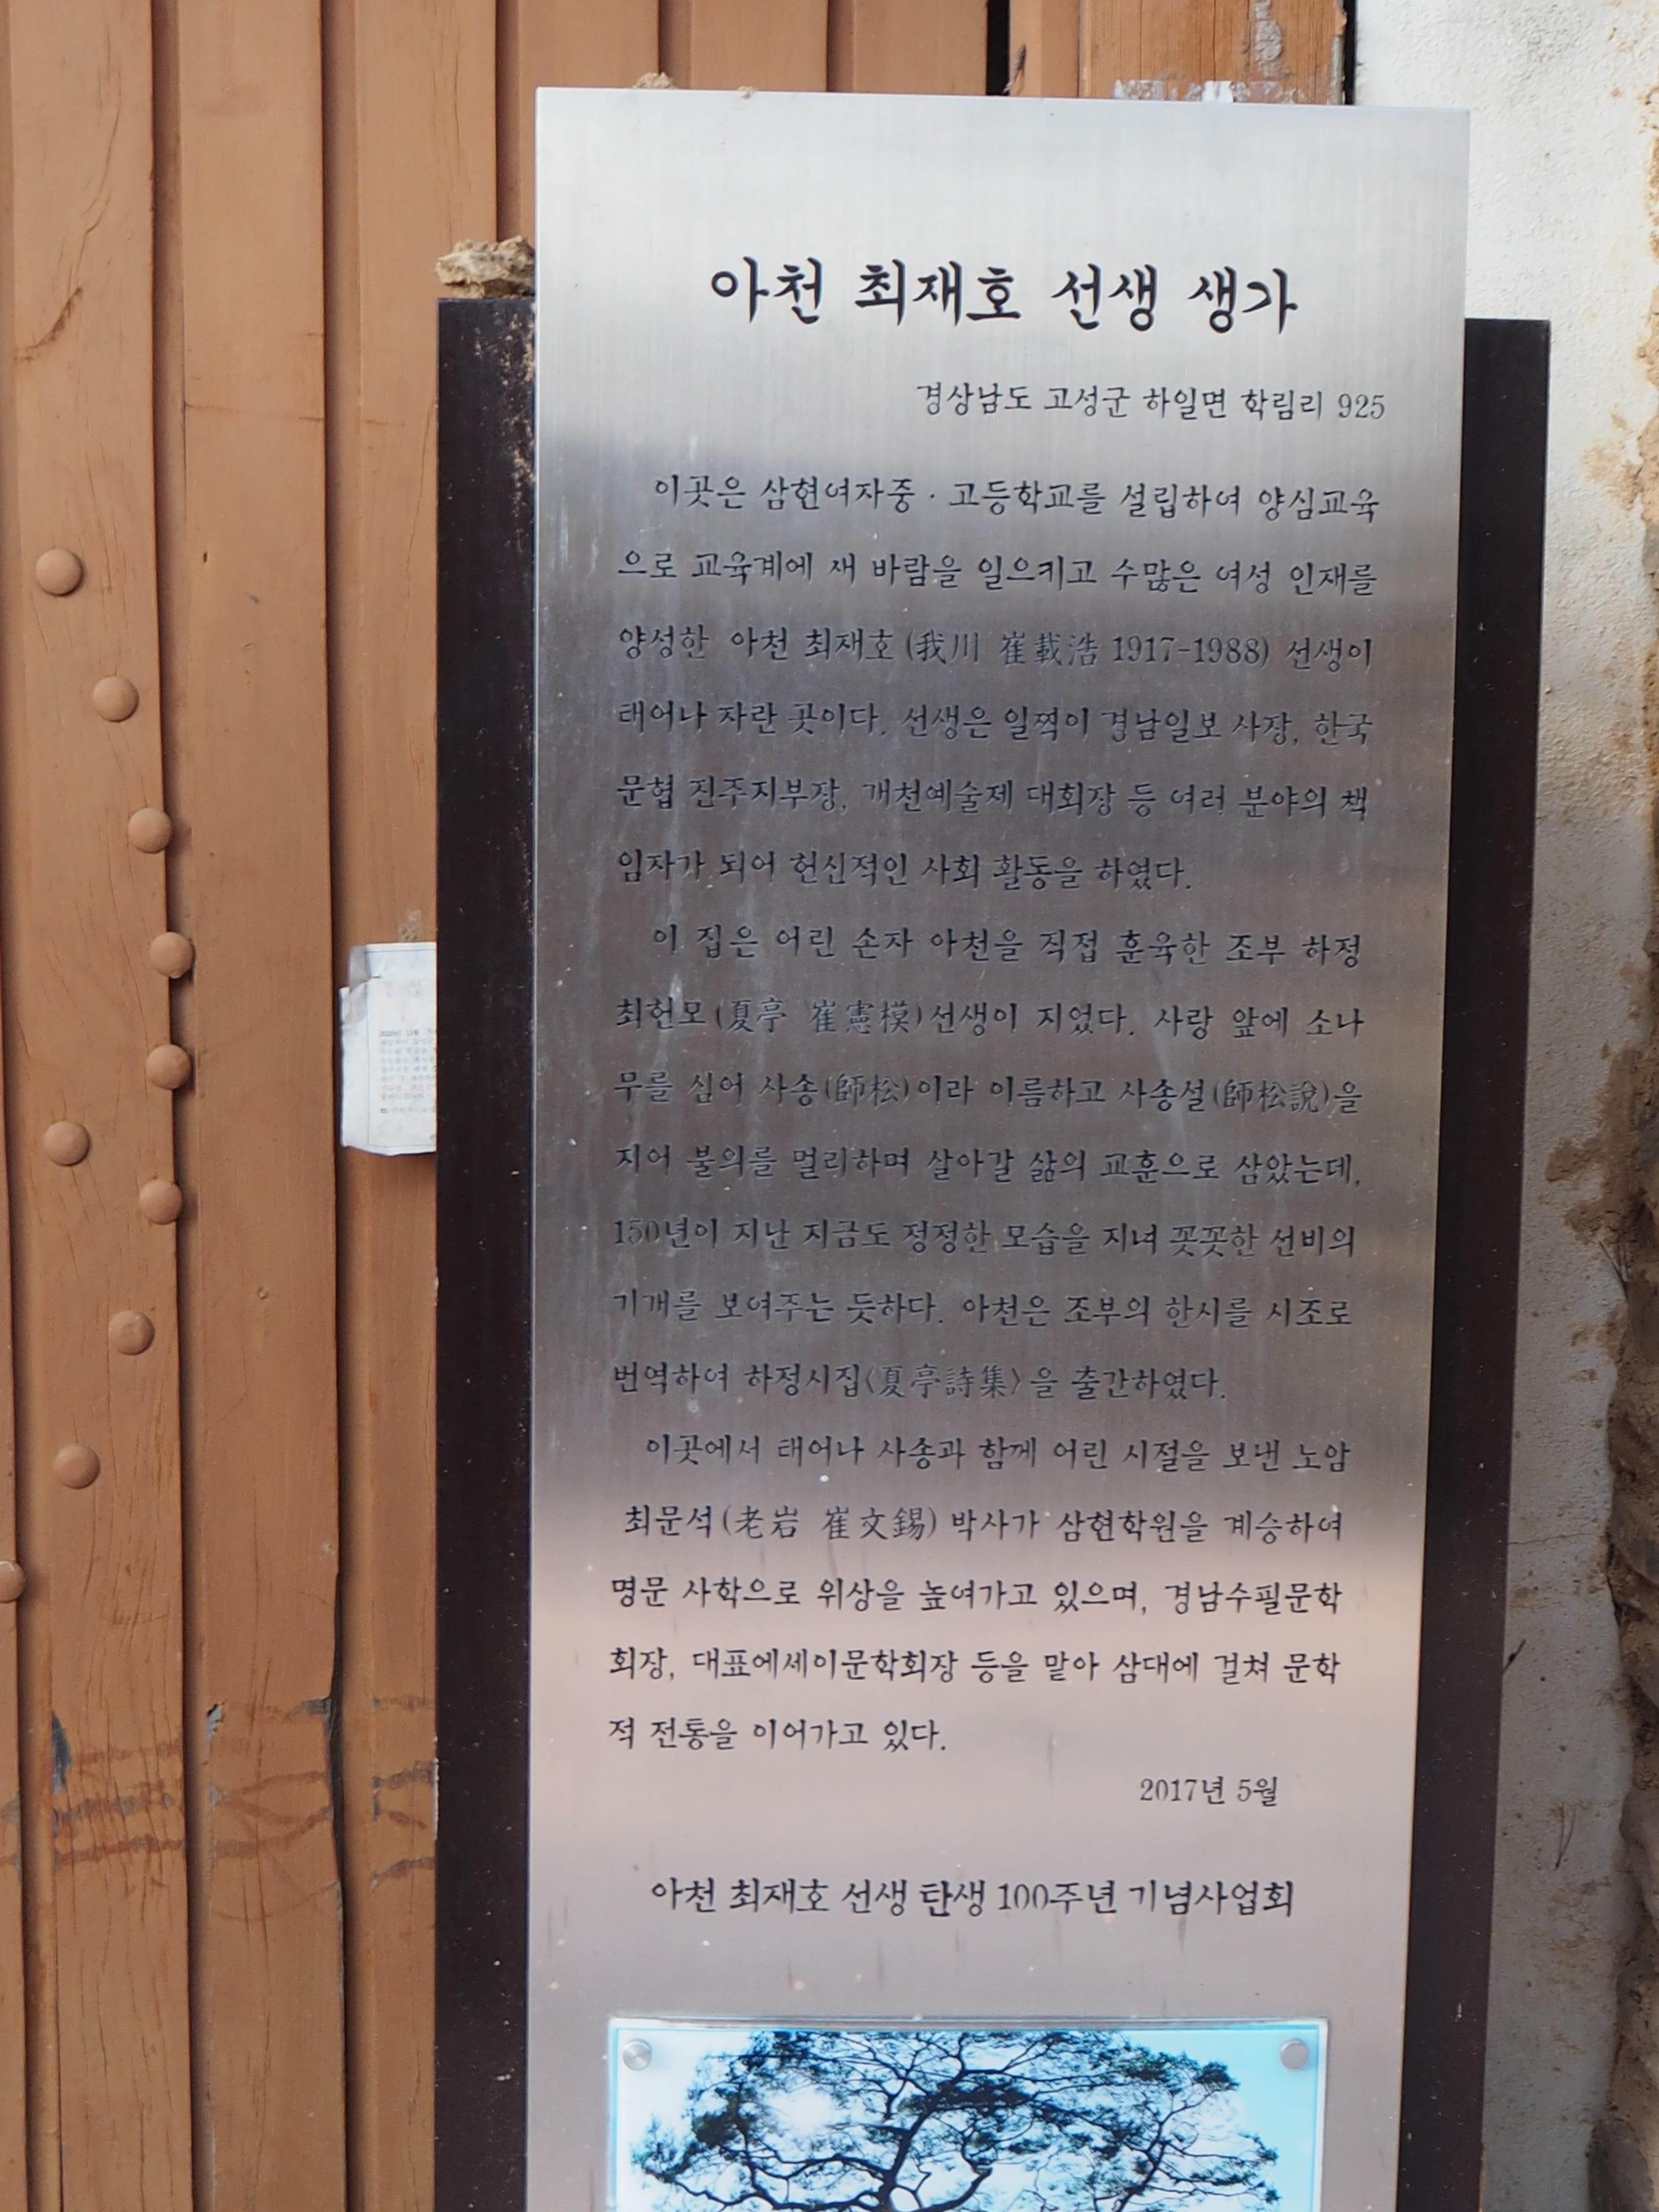 아천 최재호 선생 생가
경상남도 고성군 하일면 학림리 925
이곳은 삼현여자중 · 고등학교를 설립하여 양심교육
으로 교육계에 새 바람을 일으키고 수많은 여성 인재를
양성한 아천 최재호 (我川 崔載浩 1917-1988) 선생이
태어나 자란 곳이다. 선생은 일찍이 경남일보 사장, 한국
문협 진주지부장, 개천예술제 대회장 등 여러 분야의 책
임자가 되어 헌신적인 사회 활동을 하였다.
이 집은 어린 손자 아천을 직접 훈육한 조부 하정
최헌모 (夏亭 崔憲模) 선생이 지었다. 사랑 앞에 소나
무를 심어 사송(師松)이라 이름하고 사송설(師松說)을
지어 불의를 멀리하며 살아갈 삶의 교훈으로 삼았는데,
150년이 지난 지금도 정정한 모습을 지녀 꼿꼿한 선비의
기개를 보여주는 듯하다. 아천은 조부의 한시를 시조로
번역하여 하정시집〈夏亭詩集〉을 출간하였다.
이곳에서 태어나 사송과 함께 어린 시절을 보낸 노암
최문석 (老岩 崔文錫) 박사가 삼현학원을 계승하여
명문 사학으로 위상을 높여가고 있으며, 경남수필문학
회장, 대표에세이문학회장 등을 맡아 삼대에 걸쳐 문학
적 전통을 이어가고 있다.
2017년 5월
아천 최재호 선생 탄생 100주년 기념사업회